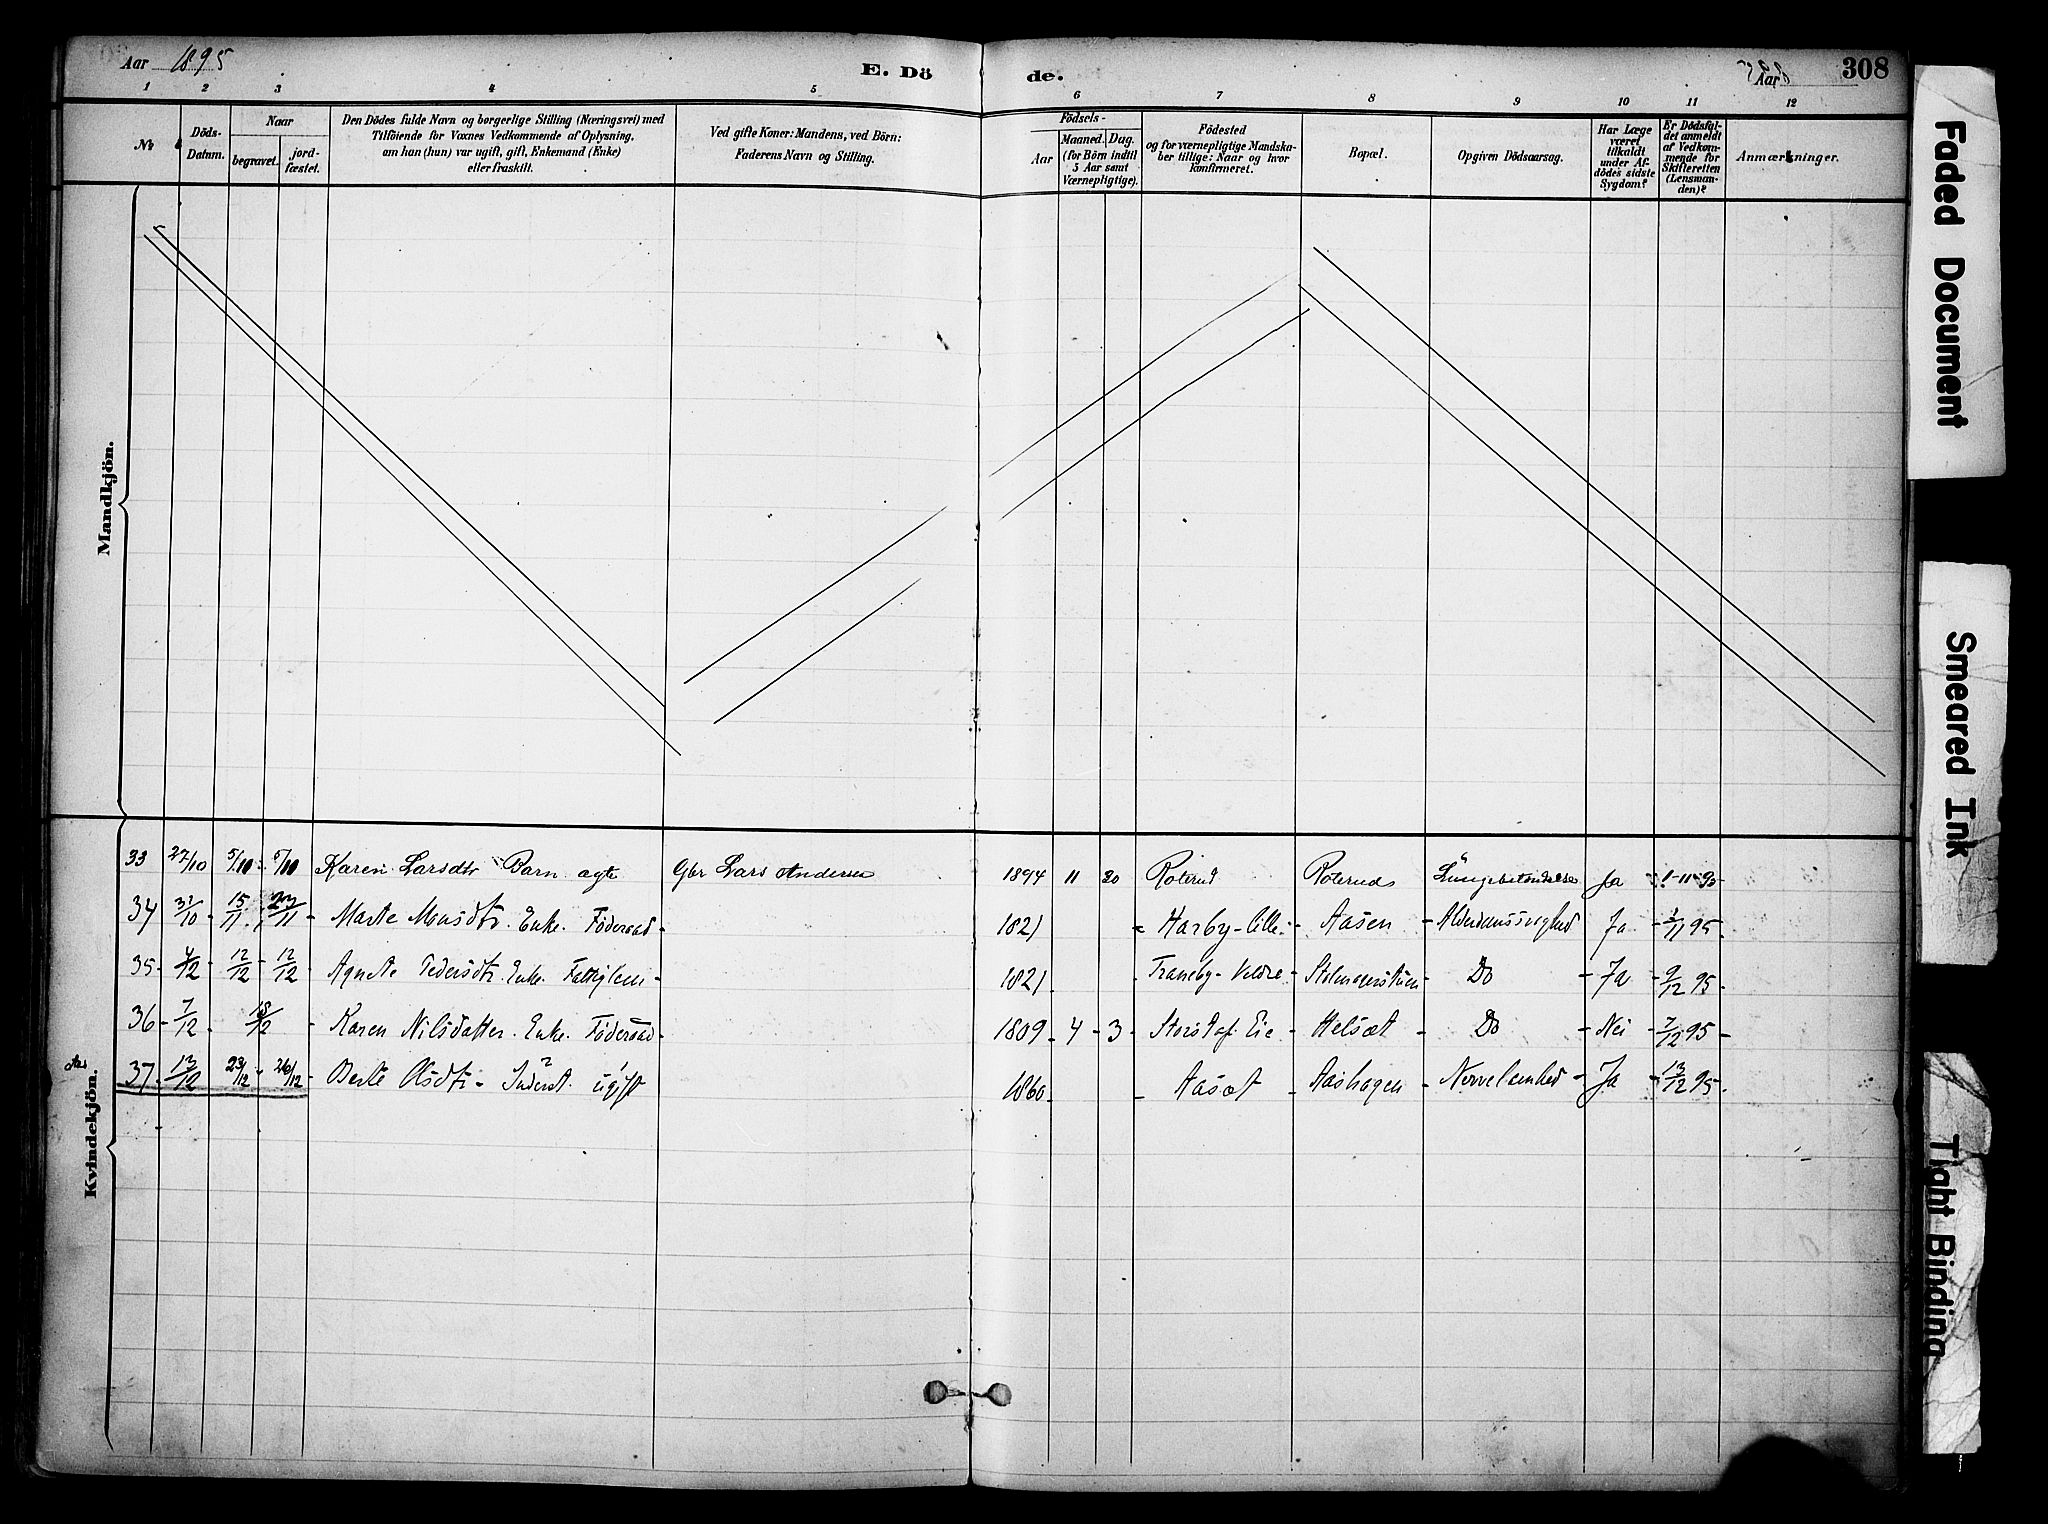 Aar 1895
E. Dö
de.
Aar
308
1 2 3 4 5 6 7 8 9 10 11 12
No
Döds-
Datum.
Naar
begravet.
jord-
fæstet.
Den Dödes fulde Navn og borgerlige Stilling (Næringsvei) med
Tilföiende for Voxnes Vedkommende af Oplysning,
om han (hun) var ugift, gift, Enkemand (Enke)
eller fraskilt.
Ved gifte Koner: Mandens, ved Börn:
Faderens Navn og Stilling.
Födsels-
Aar
Maaned. Dag.
(for Börn indtil
5 Aar samt
Værnepligtige).
Födested
og for værnepligtige Mandska-
ber tillige: Naar og hvor
konfirmeret.
Bopæl.
Opgiven Dödsaarsag.
Har Læge
været
tilkaldt
under Af-
dödes sidste
Sygdom?
Er Dödsfal-
det anmeldt
af Vedkom-
mende for
Skifteretten
(Lensman-
den)?
Anmærkninger.
Mandkjön.
Kvindekjön.
33 27/10 5/10 Karen Larsdtr Barn ægte Gbr Lars Andersen 1894 11 20 Roterud Roteruds Lungebetændelse Ja 1-11-95
34 31/10 15/11 23/11 Marte Monsdtr. Enke. Föderaad 1821 Harby-Lille Aasen Alderdomssvaghed Ja 1/11 95
35 4/12 12/12 12/12 Agnete Pedersdtr. Enke. Fattiglem 1821 Traneby-Veldre Do Ja 9/12 95
36 7/12 18/12 Karen Nilsdatter. Enke. Föderaad 1809 4 3 Storstaf. Eie Helsæt Do Nei 7/12 95
37 13/12 23/12 26/12 Berte Olsdtr Inderst. ugift 1860 Aasæt Aashagen Ja 13/12 95
Faded Document
Smeared Ink
Tight Binding